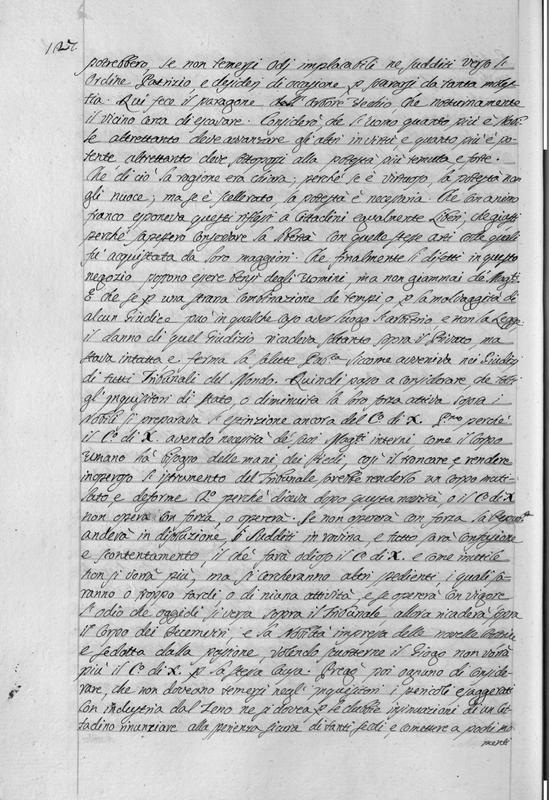 potrebbero, se non temersi odj implacabili ne sudditi verso l'
Ordine Patrizio, e desiderj di occasione p pararsi da tanta
tia. Qui fece il paragone dell' arbore vecchio che notturnamente
il vicino cerca di scavare. Considerò che l'uomo quanto più è
le altrettanto deve avvanzare gli altri in virtù e quanto più è po-
tente altrettanto deve sottoporsi alla potestà più temuta e forte.
Che di ciò la ragione era chiara; perchè se è virtuoso, la potestà non
gli nuoce; ma se è scellerato, la potestà è necessaria. Che con animo
franco esponeva questi riflessi a Cittadini egualmente liberi, che
perchè sapessero conservar la libertà con quelle stesse arti colle quali
fu acquistata da loro maggiori. Che finalmente li difetti in questo
negozio possono essere bensì degli Uomini, ma non giammai de Magti.
E che se p una strana combinazione de tempi o p la malvaggità di
alcun Giudice può in qualche caso aver luogo l'arbitrio e non la Legge
il danno di quel Giudizio ricadeva soltanto sopra il Privato, ma
stava intatta e ferma la salute Pub.ca siccome avveniva nei Giudizj
di tutti Tribunali del Mondo. Quindi passò a considerare che tolti
gl' inquisitori di stato, o diminuita la loro forza attiva sopra i
Nobili si preparava l' estinzione ancora del C.o di X. P.mo perchè
il C.o di X. avendo necessità de suoi Magti interni come il Corpo
umano ha bisogno delle mani dei piedi, così il troncare e rendere
inoperoso l' istrumento del Tribunale, sarebbe renderlo un corpo muti-
lato e deforme. 2.o perchè diceva dopo questa novità o il C.o di X
non opera con forza, o opererà. Se non opererà con forza la
anderà in dissoluzione, li Sudditi in rovina, e tutto sarà confusione
e scontentamento, il chè farà odioso il C.o di X. e come inutile
non si vorrà più, ma si cercheranno altri spedienti, i quali sa-
ranno o troppo tardi o di niuna attività, e se opererà con vigore
l' odio che oggidì si versa sopra il Tribunale, allora ricaderà sopra
il Corpo dei Decemviri, e la Nobiltà impressa delle novelle
e sedotta dalla passione, volendo scuoterne il Giogo non vorrà
più il C.o di X. p la stessa causa. Pregò poi ognuno di conside-
rare, che non doveano temersi negl' Inquisitori i pericoli esaggerati
con industria dal Zeno ne si dovea p le dubbie insinuazioni di un Cit-
tadino rinunziare alla sperienza sicura di tanti secoli e commettere a pochi mo-
menti